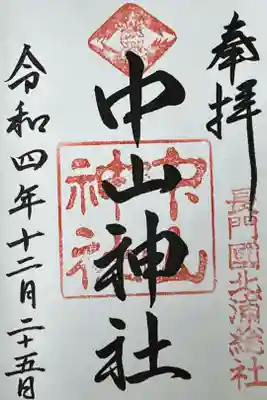 奉拝
長門國北浦総社
中山神社
中山
神社
令和四年十二月二十五日